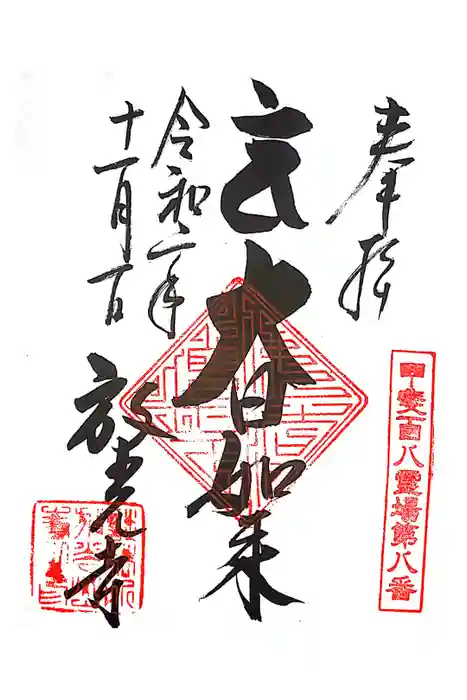 奉拝
甲斐百八霊場第八番
大日如来
令和二年
十一月一日
放光寺